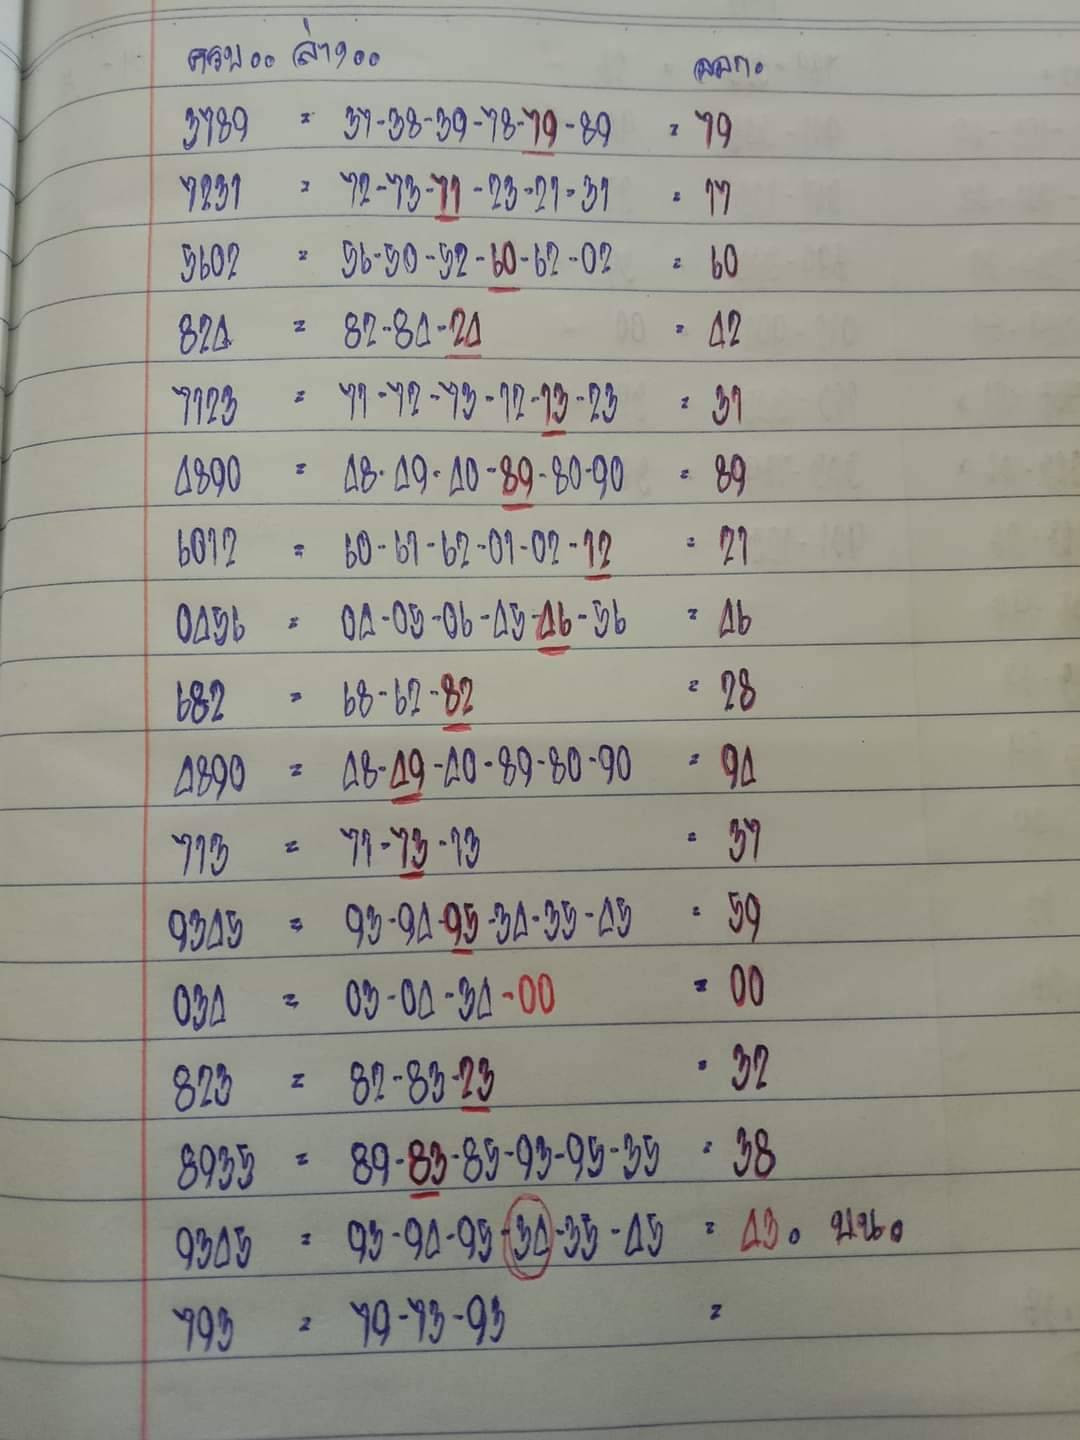 ครบ.. ล่าง.. ออก.
3789 = 37-38-39-78-79-89 = 79
7231 = 72-73-71-23-21-31 = 17
5602 = 56-50-52-60-62-02 = 60
824 = 82-84-24 = 42
7123 = 71-72-73-12-13-23 = 31
4890 = 48-49-40-89-80-90 = 89
6012 = 60-61-62-01-02-12 = 21
0456 = 04-05-06-45-46-56 = 46
682 = 68-62-82 = 28
4890 = 48-49-40-89-80-90 = 94
713 = 71-73-13 = 37
9345 = 93-94-95-34-35-45 = 59
034 = 03-04-34-00 = 00
823 = 82-83-23 = 32
8935 = 89-83-85-93-95-35 = 38
9345 = 93-94-95-34-35-45 = 43. บน.
793 = 79-73-93 =